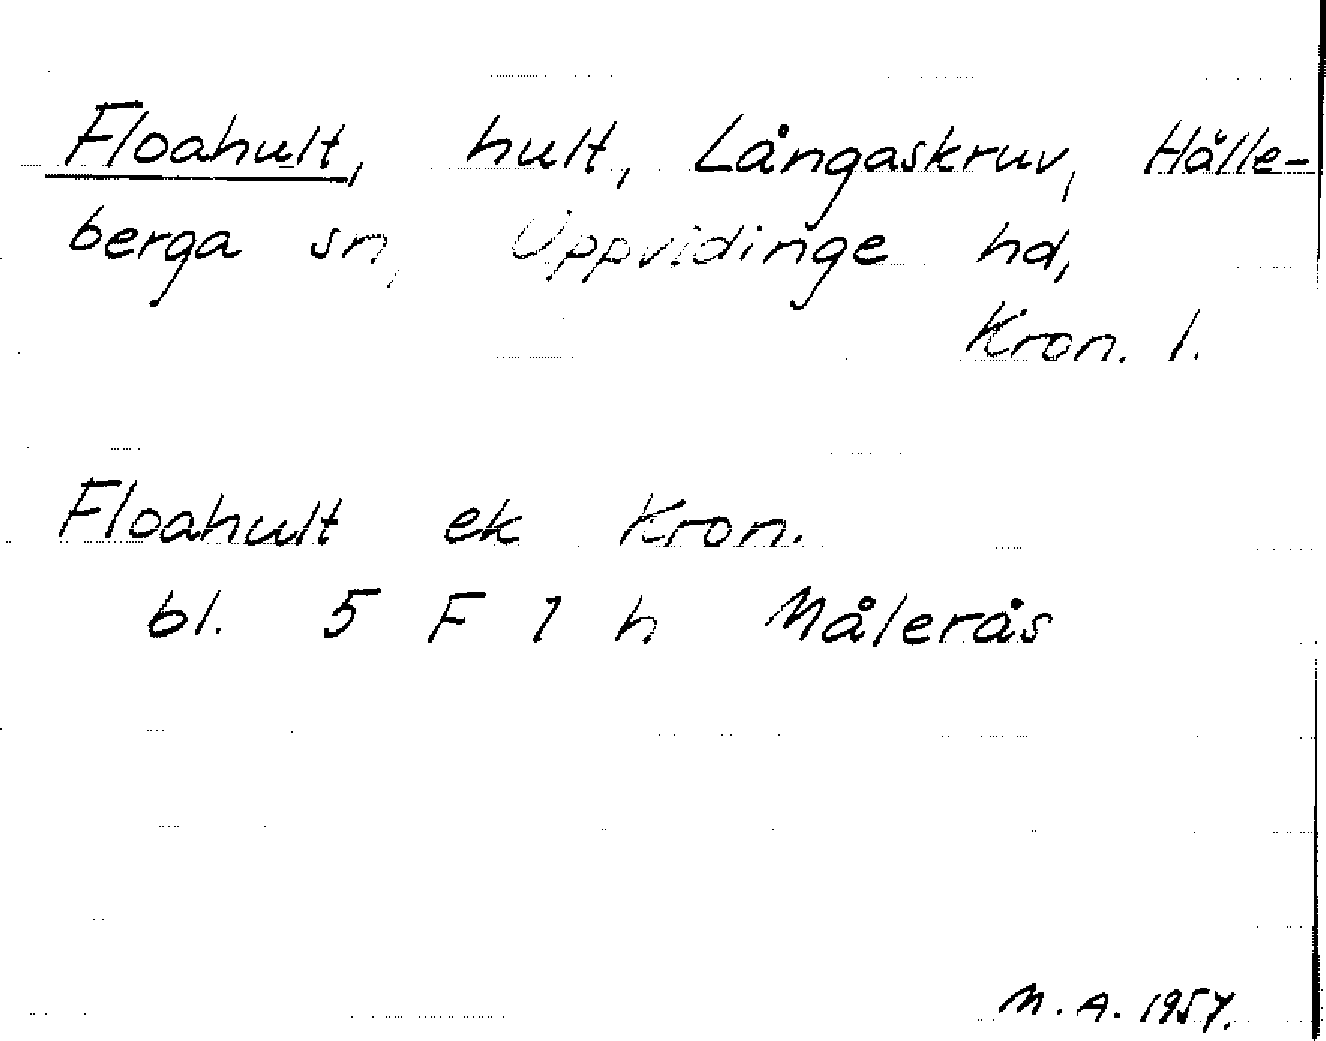 Floahult, hult, Långaskruv, Hälle-
berga sn, Uppvidinge hd,
Kron. l.
Floahult ek Kron.
bl. 5 F 7 h Målerås
M. A. 1957.